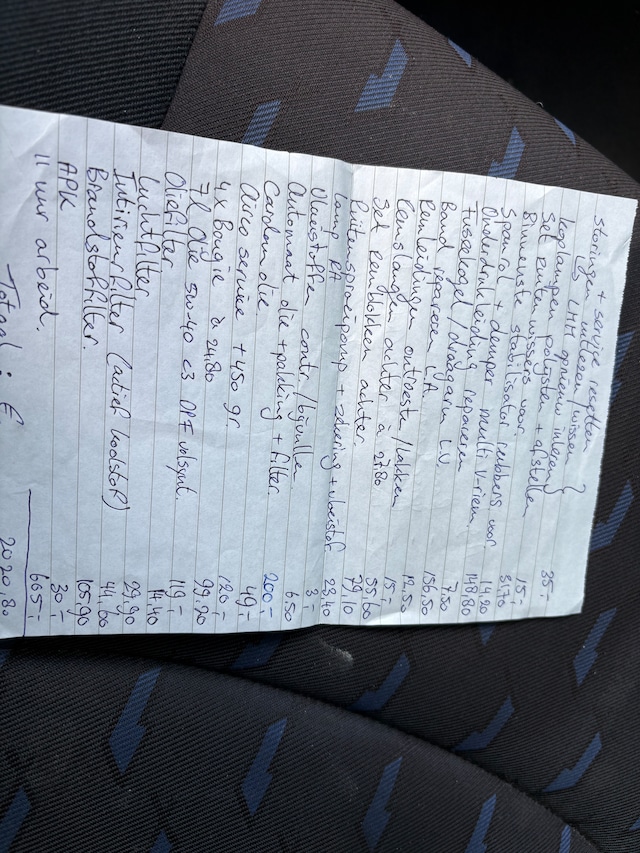 Storingen + service resetten
uitlezen wissen
LHH opnieuw inlezen
koplampen polijsten + afstellen 35,-
Set ruiten wissers voor. 15,-
Binnenste stabilisator rubbers voor 31,70
Spanrol + demper multi V-riem 148,80
Onderdrukleiding repareren 7,50
Fuseekogel / draagarm L.V. 156,50
Band repareren L.A. 12,50
Remleidingen ontroesten / lakken 15,-
Remslangen achter à 27,80 55,60
Set remblokken achter. 79,10
Ruitensproeipomp + zekering +
Lamp RA 3,-
Vloeistoffen contr / bijvullen 6,50
Automaat olie + pakking + filter 200,-
Cardan olie.
Airco service + 450 gr 49,-
4 x Bougie à 24,80 99,20
7 L olie 5W-40 C3 DPF volsynt. 119,-
Oliefilter 14,40
Luchtfilter 29,90
Interieurfilter (actief koolstof) 44,60
Brandstoffilter. 105,90
APK 30,-
11 uur arbeid. 605,-
Totaal: € 2020,80